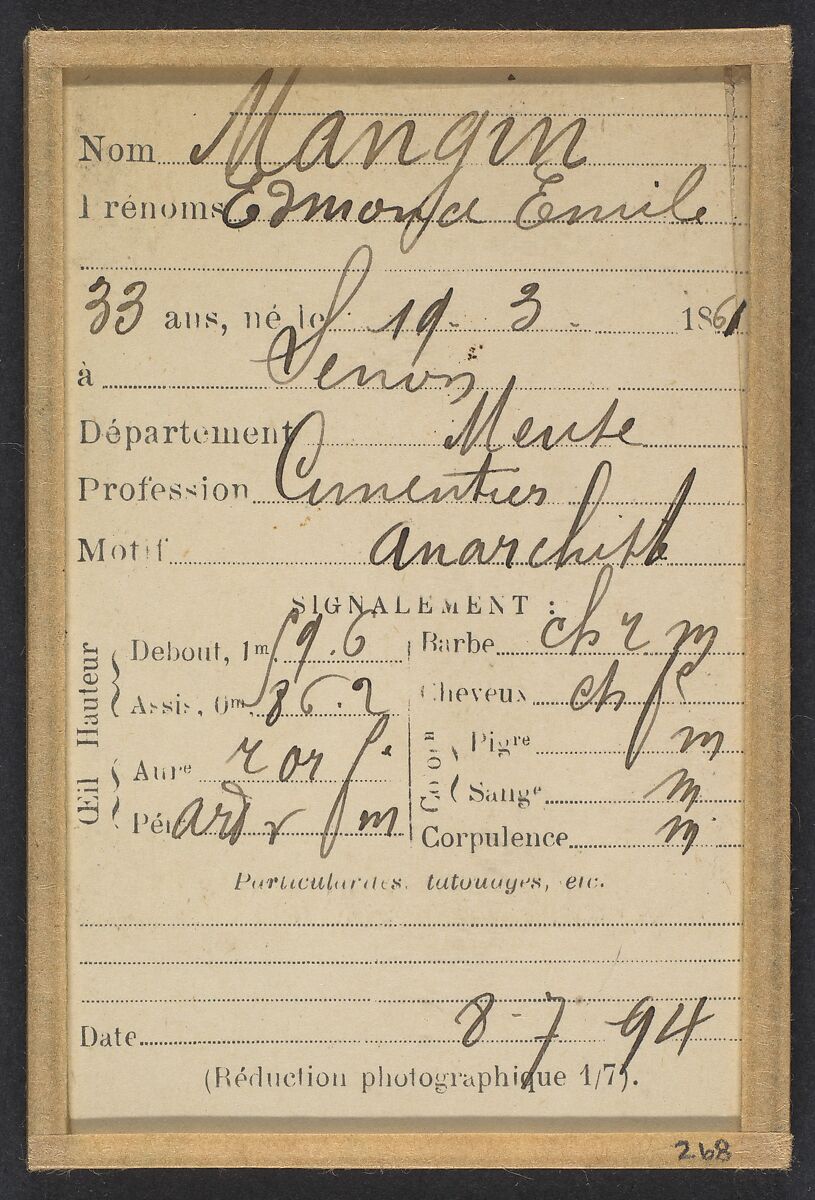 Nom Mangin
Prénoms Edmond Emile
33 ans, né le 19 - 3 - 1861
à Senon
Département Meuse
Profession Cimentier
Motif anarchiste
SIGNALEMENT :
Hauteur
Debout, 1m 59.6
Assis, 0m 86.2
Œil
Aure r or f.
Périe ard v m
Barbe ch r m
Cheveux ch f
Coloon
Pigre m
Sange m
Corpulence m
Particularités, tatouages, etc.
Date 8 - 7 94
(Réduction photographique 1/7).
268